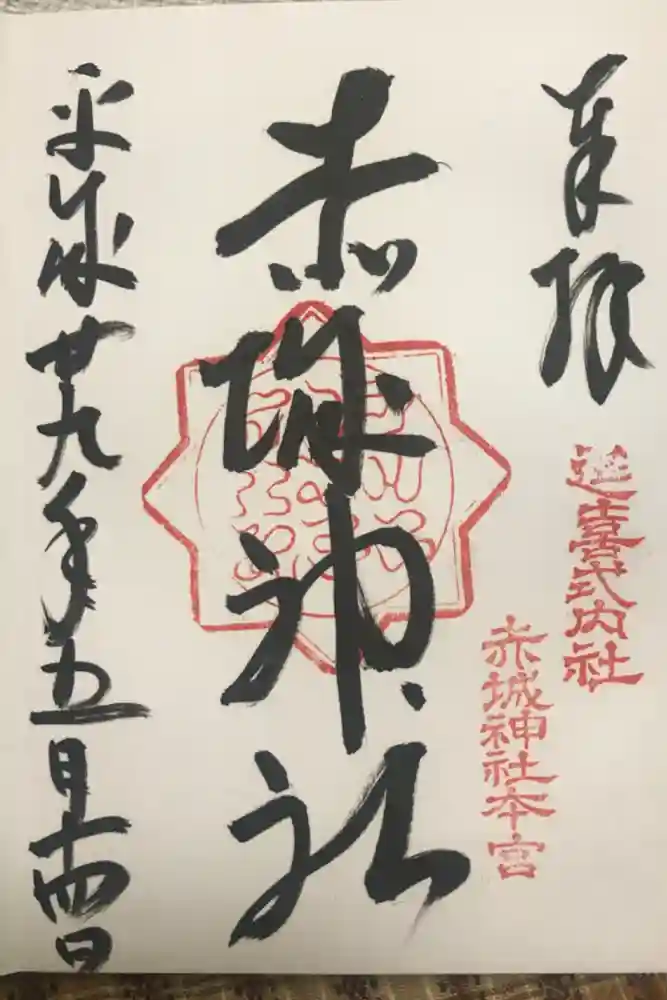 奉拝
延喜式内社
赤城神社本宮
赤城神社
平成廿九年五月十四日